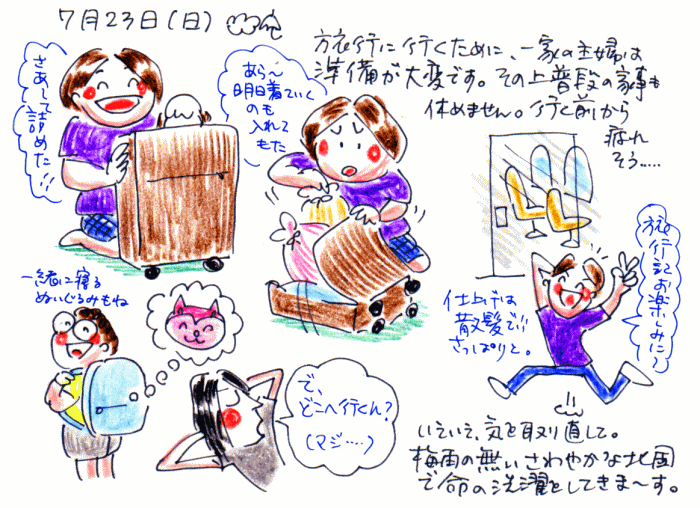 7月23日(日)
旅行に行くために、一家の主婦は
準備が大変です。その上普段の家事も
休めません。行く前から
疲れ
そう……
さあして
詰めた!!
あら〜
明日着ていく
のも
入れて
もた
旅行記お楽しみに♪
一緒に寝る
ぬいぐるみもね
仕上げは
散髪で!!
さっぱりと。
で、
どこへ行くん?
(マジ……)
いえいえ、気を取り直して。
梅雨の無いさわやかな北国
で命の洗濯をしてきま〜す。